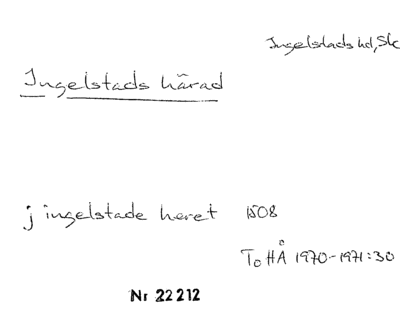 Ingelstads hd, Sk
Ingelstads härad
j ingelstade heret 1508
ToHÅ 1970-1971:30
Nr 22 212